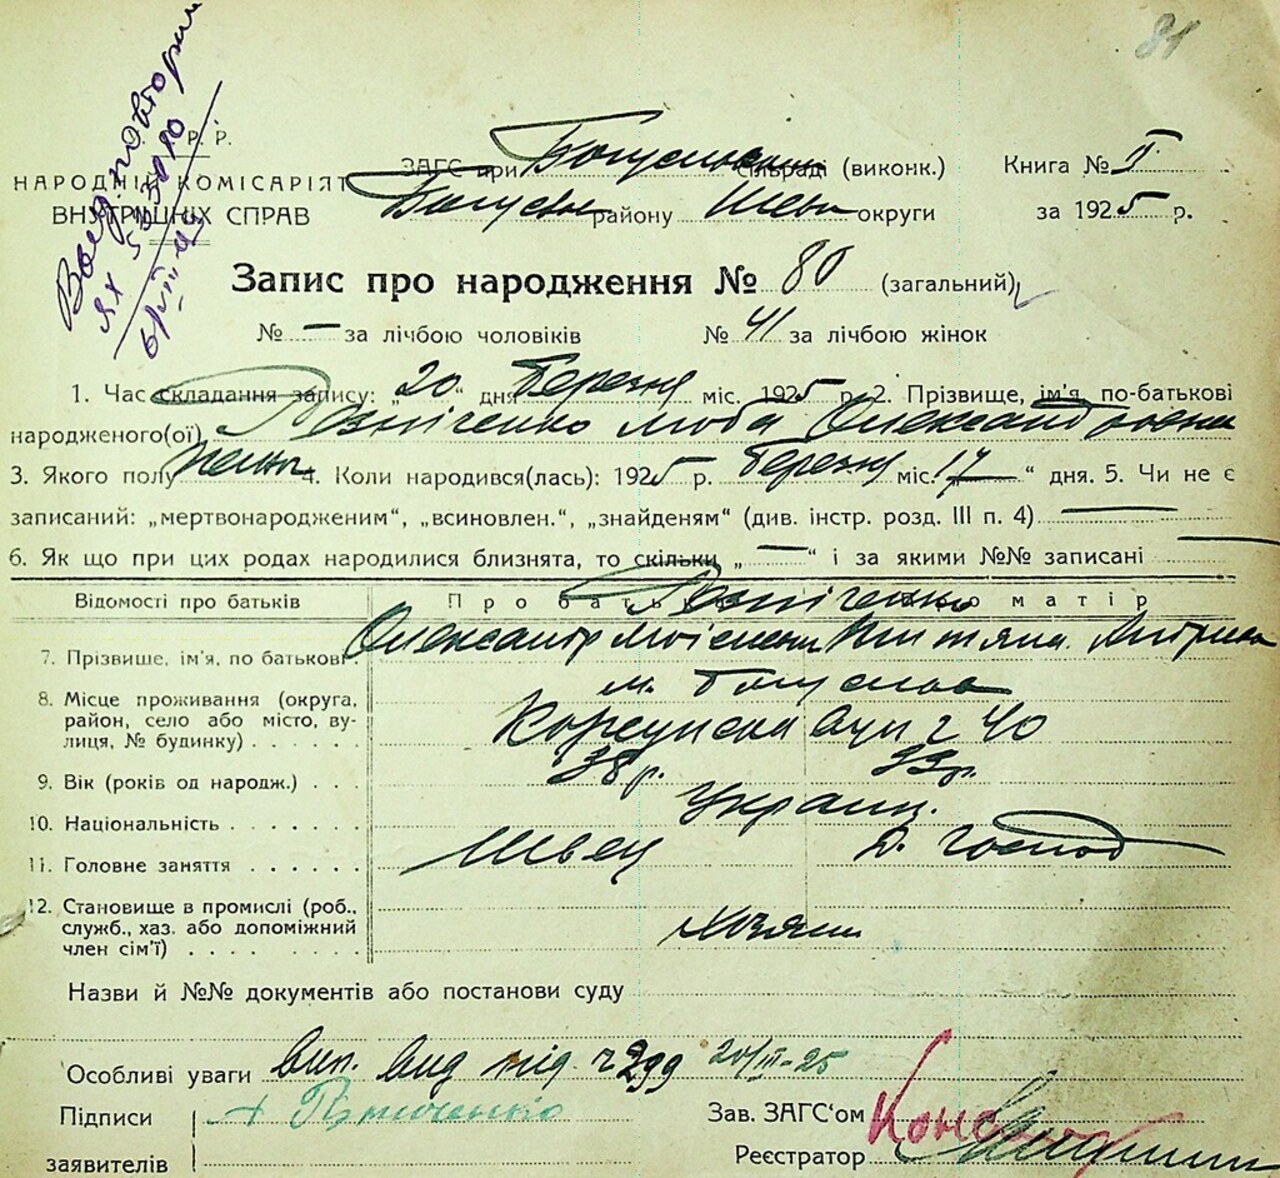 81
Р. Р.
НАРОДНІЙ КОМІСАРІЯТ
ВНУТРІШНІХ СПРАВ
ЗАГС при Богуславськ сільраді (виконк.) Книга № II
Богусл району Шевч округи за 1925 р.
Запис про народження № 80 (загальний)
№ — за лічбою чоловіків № 41 за лічбою жінок
1. Час складання запису: „20“ дня березня міс. 1925 р. 2. Прізвище, ім'я, по-батькові
народженого(ої) Резніченко Люба Олександровна
3. Якого полу жін. 4. Коли народився(лась): 1925 р. березня міс. „17“ дня. 5. Чи не є
записаний: „мертвонародженим“, „всиновлен.“, „знайденям“ (див. інстр. розд. III п. 4) —
6. Як що при цих родах народилися близнята, то скільки „—“ і за якими №№ записані —
Відомості про батьків Про батька Про матір
Резніченко
7. Прізвише, ім'я, по батькові. Олександр Моісеєв
8. Місце проживання (округа, район, село або місто, вулиця, № будинку) м. Богуслав
Корсунська вул ч 40
9. Вік (років од народж.) 38 р. 33 р.
10. Національність Украин.
11. Головне заняття Швец Д. Господ
12. Становище в промислі (роб., служб., хаз. або допоміжний член сім'ї) Хозяин
Назви й №№ документів або постанови суду
Особливі уваги вип. вид під ч 299 20/III-25
Підписи Резниченко Зав. ЗАГС'ом
заявителів Реєстратор